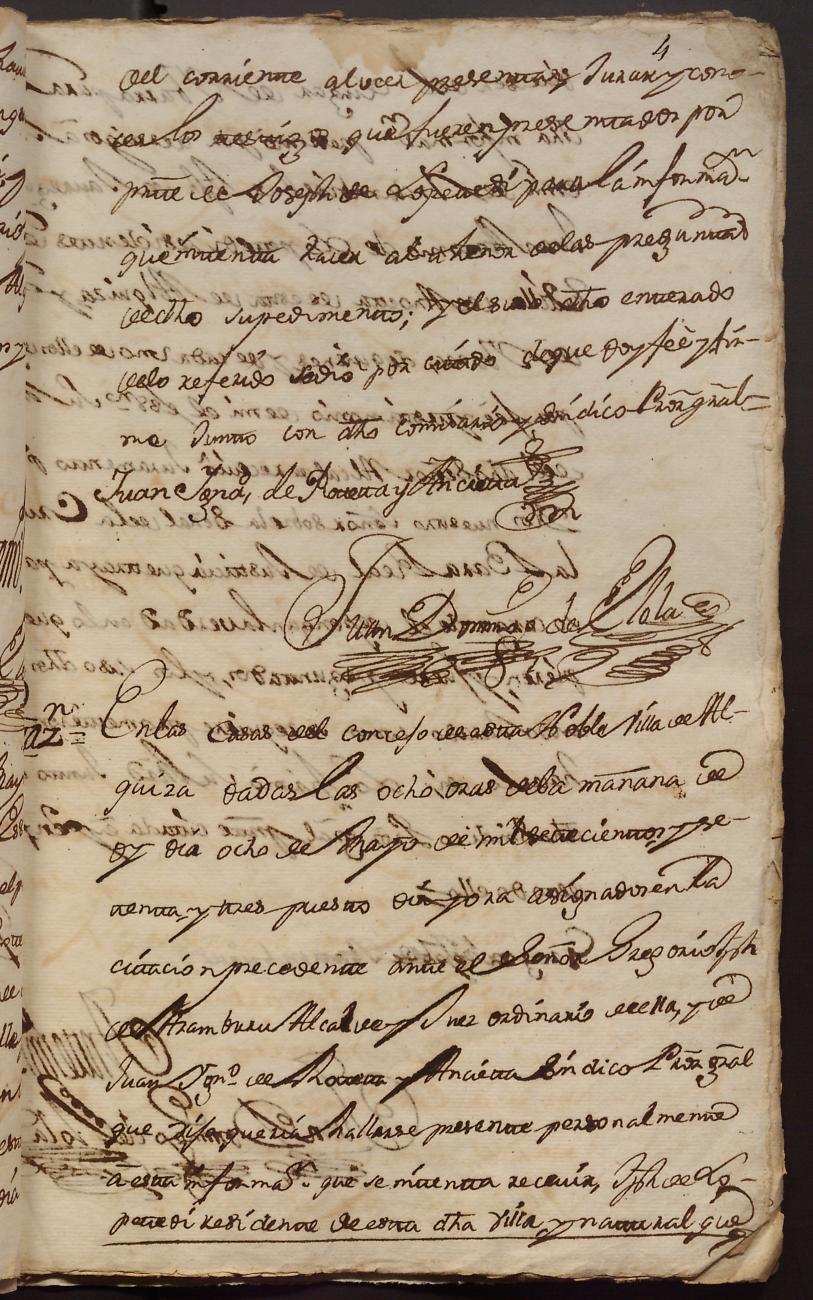 4
del corriente a les ver presentar, Jurar, y cono-
cer los testigos que fueren presentados por
partte de Joseph de Lopettedi para la informaon
que inttenta hacer al thenor de las preguntas
de dho su pedimento; y el suso dho entterado
de lo referido se dio por cittado de que doy feè y fir-
mo Juntto con dho Comisario y Sindico Pror gral =
Juan Ignō de Rotetta y Ancietta
Juan Domingo de Olola
En las Casas del Concejo de estta Noble Villa de Al-
quiza dadas las ocho oras de la mañana de
oy dia ocho de Mayo de mil settecienttos y se-
ttentta y tres puestto dia y ora asignados en la
cittacion precedentte antte el Señor Gregorio Jph
de Aramburu Alcalde y Juez ordinario de ella, y de
Juan Ignō de Rotetta y Ancietta Sindico Pror gral
que dijo queria hallarse presentte personalmentte
à estta informaon. que se inttentta recivir, Jph de Lo-
pettedi residentte de estta dha Villa, y nattural que